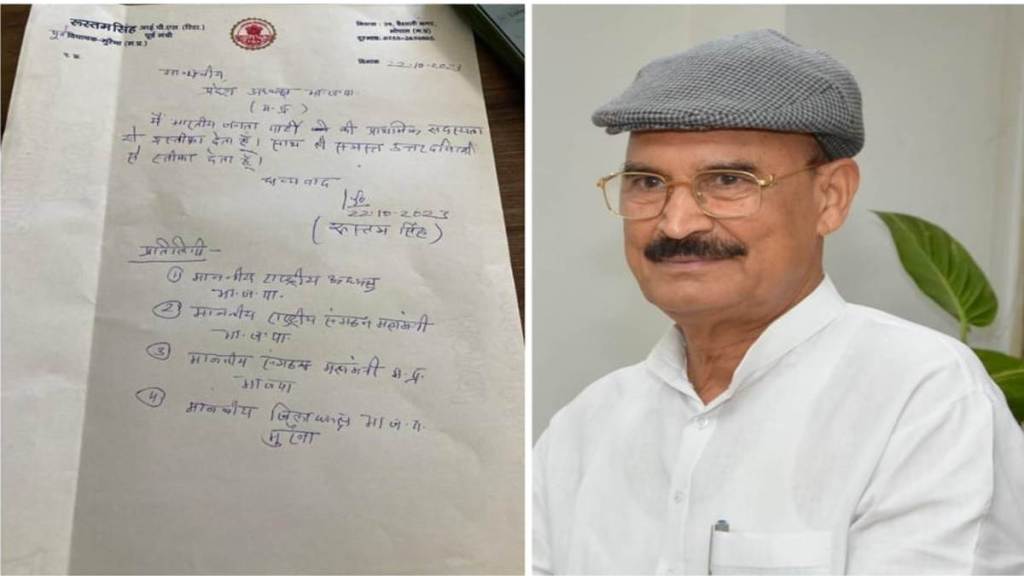 रुस्तम सिंह आई.पी.एस (रिटा.)
पूर्व मंत्री
पूर्व विधायक-मुरैना (म.प्र.)
भोपाल (म.प्र)
दिनांक 22.10.2023
माननीय,
प्रदेश अध्यक्ष भाजपा
(म.प्र)
मैं भारतीय जनता पार्टी की प्राथमिक सदस्यता
से इस्तीफा देता हूँ। साथ ही समस्त उत्तरदायित्वों
से स्तीफा देता हूँ।
धन्यवाद
22.10.2023
(रुस्तम सिंह)
प्रतिलिपी -
① माननीय राष्ट्रीय अध्यक्ष
भा.ज.पा.
② माननीय राष्ट्रीय संगठन महामंत्री
भा.ज.पा.
③ माननीय संगठन महामंत्री म.प्र.
भाजपा
④ माननीय जिलाध्यक्ष भा.ज.पा.
मुरैना